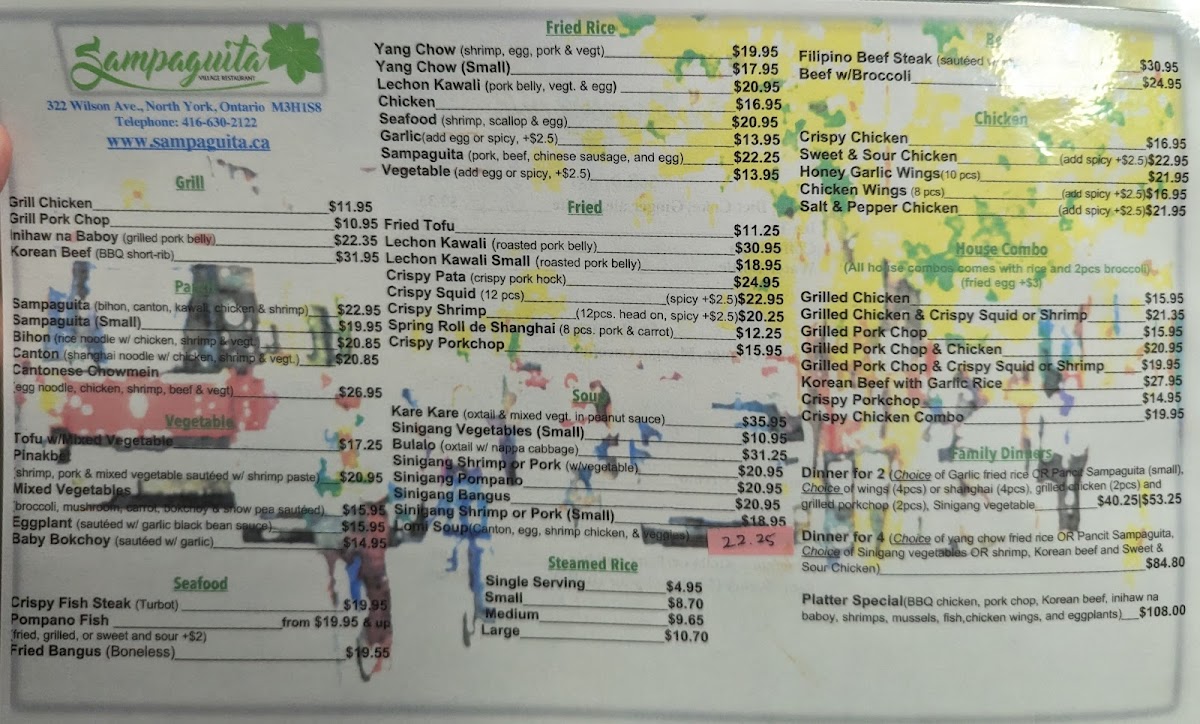 Sampaguita
VILLAGE RESTAURANT
322 Wilson Ave., North York, Ontario M3H1S8
Telephone: 416-630-2122
www.sampaguita.ca
Grill
Grill Chicken $11.95
Grill Pork Chop $10.95
Inihaw na Baboy (grilled pork belly) $22.35
Korean Beef (BBQ short-rib) $31.95
Sampaguita (bihon, canton, kawali, chicken & shrimp) $22.95
Sampaguita (Small) $19.95
Bihon (rice noodle w/ chicken, shrimp & vegt.) $20.85
Canton (shanghai noodle w/ chicken, shrimp & vegt.) $20.85
Cantonese Chowmein
egg noodle, chicken, shrimp, beef & vegt) $26.95
Vegetable
Tofu w/Mixed Vegetable $17.25
Pinakbet
shrimp, pork & mixed vegetable sautéed w/ shrimp paste) $20.95
Mixed Vegetables
broccoli, mushroom, carrot, bokchoy & snow pea sautéed) $15.95
Eggplant (sautéed w/ garlic black bean sauce) $15.95
Baby Bokchoy (sautéed w/ garlic) $14.95
Seafood
Crispy Fish Steak (Turbot) $19.95
Pompano Fish from $19.95 & up
fried, grilled, or sweet and sour +$2)
Fried Bangus (Boneless) $19.55
Fried Rice
Yang Chow (shrimp, egg, pork & vegt) $19.95
Yang Chow (Small) $17.95
Lechon Kawali (pork belly, vegt. & egg) $20.95
Chicken $16.95
Seafood (shrimp, scallop & egg) $20.95
Garlic(add egg or spicy, +$2.5) $13.95
Sampaguita (pork, beef, chinese sausage, and egg) $22.25
Vegetable (add egg or spicy, +$2.5) $13.95
Fried
Fried Tofu $11.25
Lechon Kawali (roasted pork belly) $30.95
Lechon Kawali Small (roasted pork belly) $18.95
Crispy Pata (crispy pork hock) $24.95
Crispy Squid (12 pcs) (spicy +$2.5)$22.95
Crispy Shrimp (12pcs. head on, spicy +$2.5)$20.25
Spring Roll de Shanghai (8 pcs. pork & carrot) $12.25
Crispy Porkchop $15.95
Soup
Kare Kare (oxtail & mixed vegt. in peanut sauce) $35.95
Sinigang Vegetables (Small) $10.95
Bulalo (oxtail w/ nappa cabbage) $31.25
Sinigang Shrimp or Pork (w/vegetable) $20.95
Sinigang Pompano $20.95
Sinigang Bangus $20.95
Sinigang Shrimp or Pork (Small) $18.95
Lomi Soup(Canton, egg, shrimp chicken, & veggies) 22.25
Steamed Rice
Single Serving $4.95
Small $8.70
Medium $9.65
Large $10.70
Filipino Beef Steak (sautéed $30.95
Beef w/Broccoli $24.95
Chicken
Crispy Chicken $16.95
Sweet & Sour Chicken (add spicy +$2.5)$22.95
Honey Garlic Wings(10 pcs) $21.95
Chicken Wings (8 pcs) (add spicy +$2.5)$16.95
Salt & Pepper Chicken (add spicy +$2.5)$21.95
House Combo
(All house combos comes with rice and 2pcs broccoli)
(fried egg +$3)
Grilled Chicken $15.95
Grilled Chicken & Crispy Squid or Shrimp $21.35
Grilled Pork Chop $15.95
Grilled Pork Chop & Chicken $20.95
Grilled Pork Chop & Crispy Squid or Shrimp $19.95
Korean Beef with Garlic Rice $27.95
Crispy Porkchop $14.95
Crispy Chicken Combo $19.95
Family Dinners
Dinner for 2 (Choice of Garlic fried rice OR Pancit Sampaguita (small),
Choice of wings (4pcs) or shanghai (4pcs), grilled chicken (2pcs) and
grilled porkchop (2pcs), Sinigang vegetable $40.25|$53.25
Dinner for 4 (Choice of yang chow fried rice OR Pancit Sampaguita,
Choice of Sinigang vegetables OR shrimp, Korean beef and Sweet &
Sour Chicken) $84.80
Platter Special(BBQ chicken, pork chop, Korean beef, inihaw na
baboy, shrimps, mussels, fish,chicken wings, and eggplants) $108.00